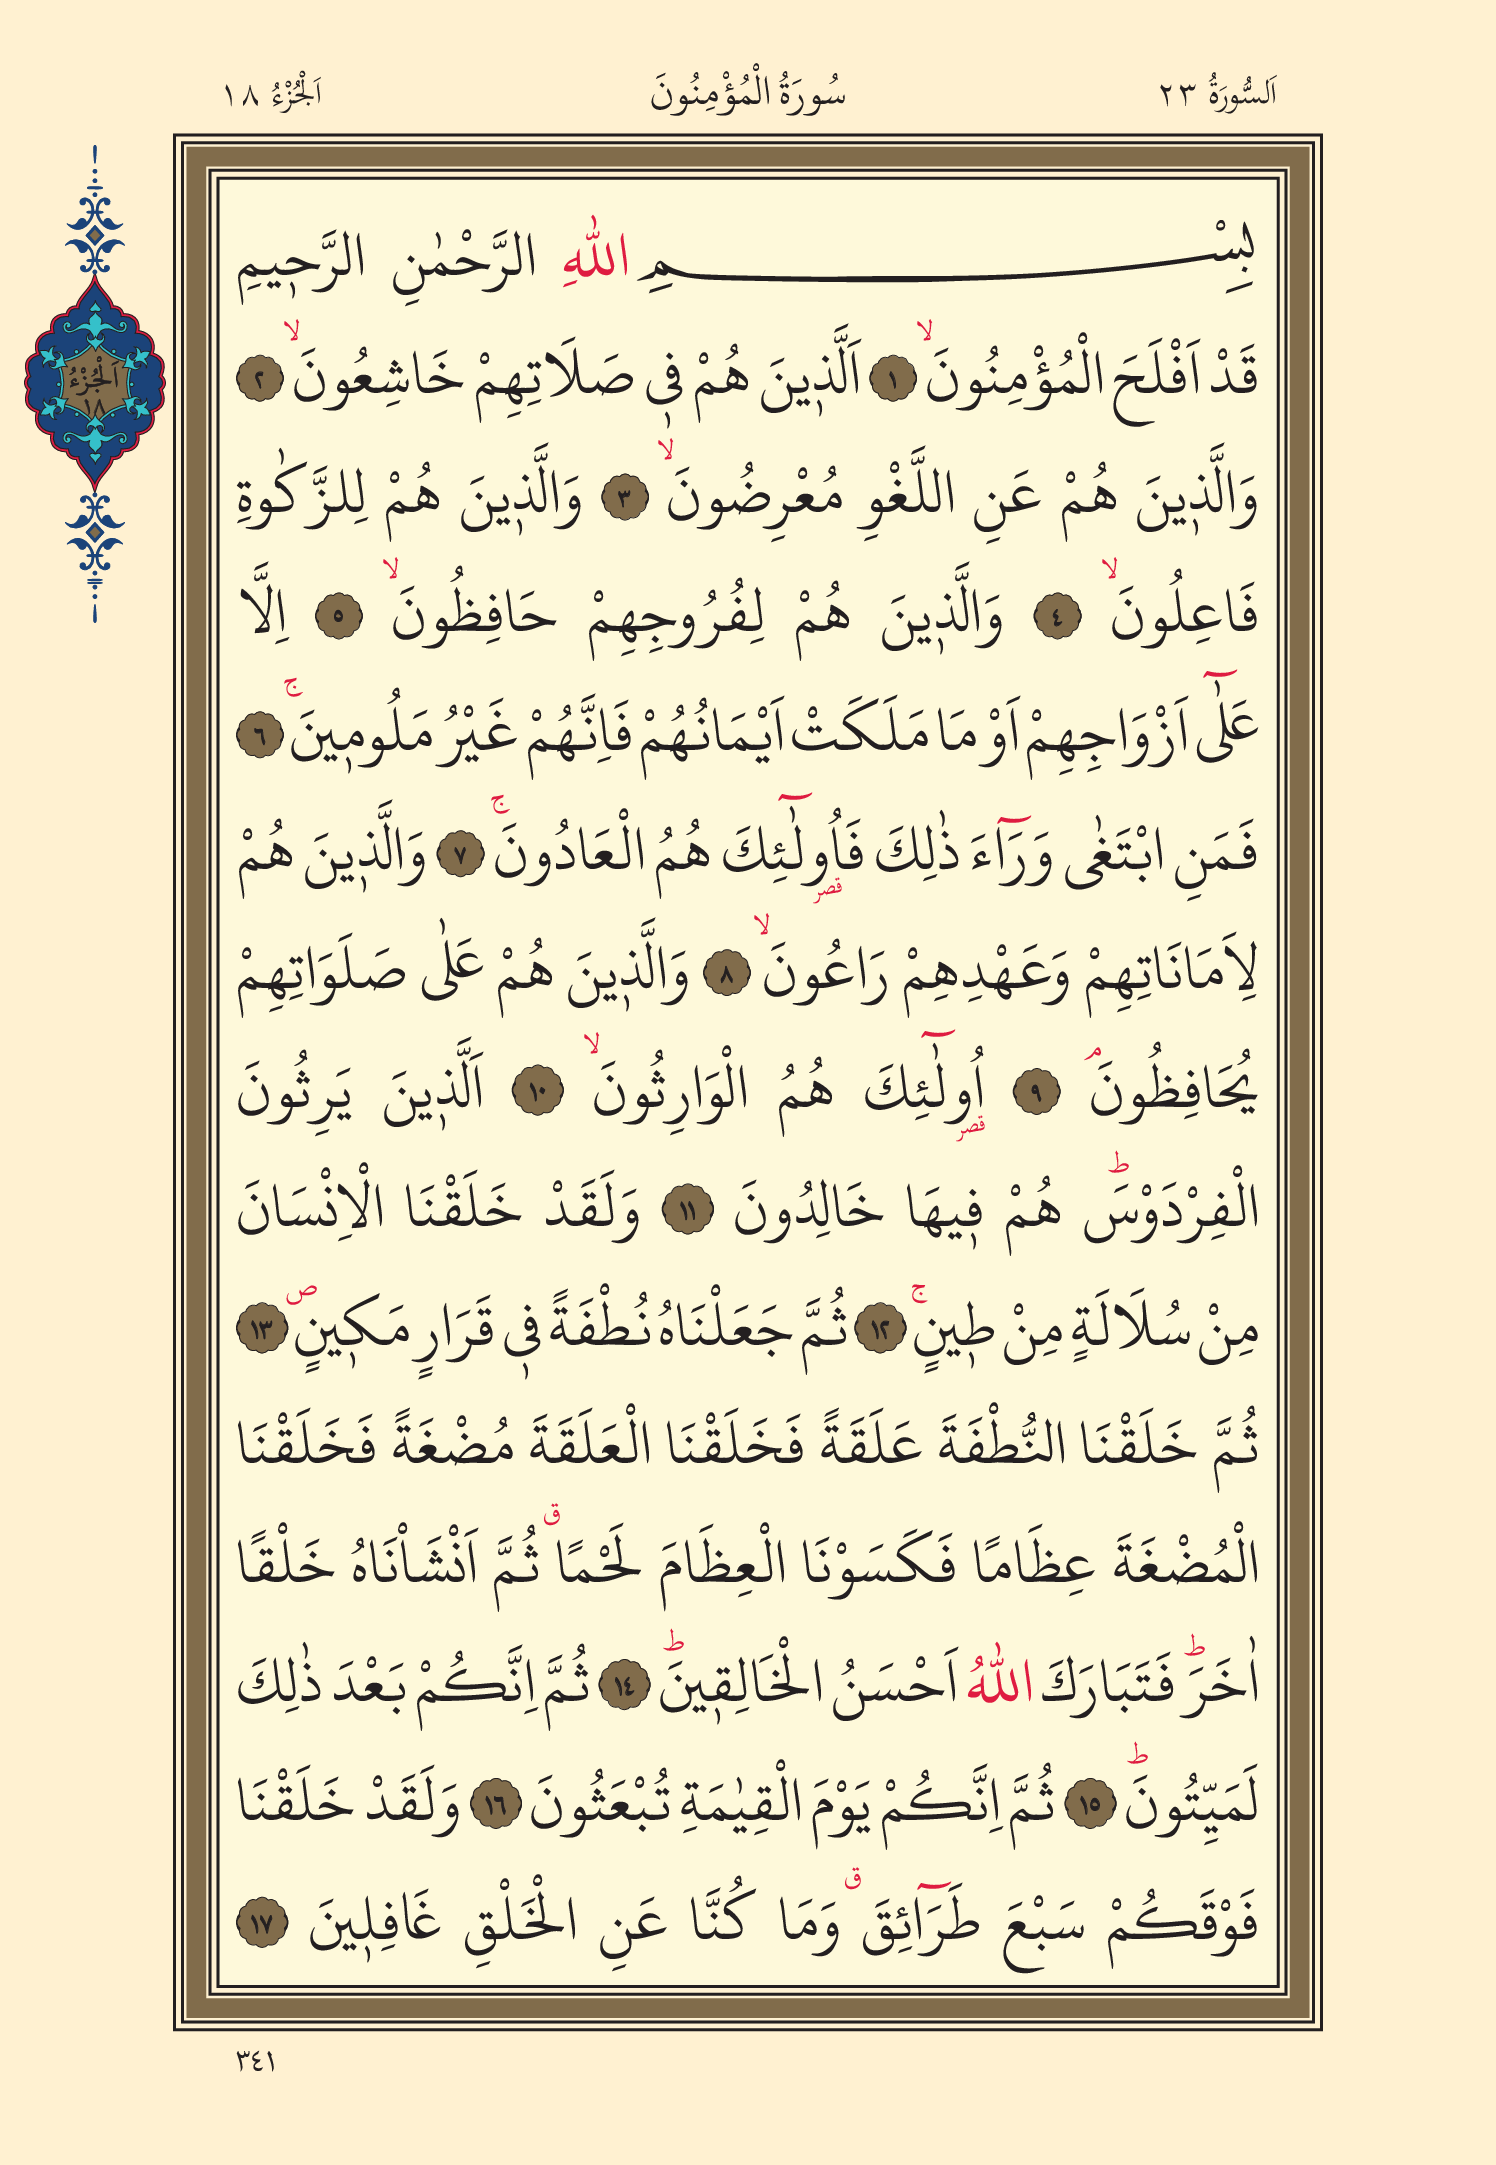 اَلسُّورَةُ ٢٣ سُورَةُ الْمُؤْمِنُونَ اَلْجُزْءُ ١٨
بِسْمِ اللّٰهِ الرَّحْمٰنِ الرَّح۪يمِ
قَدْ اَفْلَحَ الْمُؤْمِنُونَۙ ١ اَلَّذ۪ينَ هُمْ ف۪ي صَلَاتِهِمْ خَاشِعُونَۙ ٢
اَلْجُزْءُ
١٨
وَالَّذ۪ينَ هُمْ عَنِ اللَّغْوِ مُعْرِضُونَۙ ٣ وَالَّذ۪ينَ هُمْ لِلزَّكٰوةِ
فَاعِلُونَۙ ٤ وَالَّذ۪ينَ هُمْ لِفُرُوجِهِمْ حَافِظُونَۙ ٥ اِلَّا
عَلٰٓى اَزْوَاجِهِمْ اَوْ مَا مَلَكَتْ اَيْمَانُهُمْ فَاِنَّهُمْ غَيْرُ مَلُوم۪ينَۚ ٦
فَمَنِ ابْتَغٰى وَرَٓاءَ ذٰلِكَ فَاُو۬لٰٓئِكَ هُمُ الْعَادُونَۚ ٧ وَالَّذ۪ينَ هُمْ
قصر
لِاَمَانَاتِهِمْ وَعَهْدِهِمْ رَاعُونَۙ ٨ وَالَّذ۪ينَ هُمْ عَلٰى صَلَوَاتِهِمْ
يُحَافِظُونَۢ ٩ اُو۬لٰٓئِكَ هُمُ الْوَارِثُونَۙ ١٠ اَلَّذ۪ينَ يَرِثُونَ
قصر
الْفِرْدَوْسَۜ هُمْ ف۪يهَا خَالِدُونَ ١١ وَلَقَدْ خَلَقْنَا الْاِنْسَانَ
مِنْ سُلَالَةٍ مِنْ ط۪ينٍۚ ١٢ ثُمَّ جَعَلْنَاهُ نُطْفَةً ف۪ي قَرَارٍ مَك۪ينٍۖ ١٣
ثُمَّ خَلَقْنَا النُّطْفَةَ عَلَقَةً فَخَلَقْنَا الْعَلَقَةَ مُضْغَةً فَخَلَقْنَا
الْمُضْغَةَ عِظَامًا فَكَسَوْنَا الْعِظَامَ لَحْمًاࣗ ثُمَّ اَنْشَاْنَاهُ خَلْقًا
اٰخَرَۜ فَتَبَارَكَ اللّٰهُ اَحْسَنُ الْخَالِق۪ينَۜ ١٤ ثُمَّ اِنَّكُمْ بَعْدَ ذٰلِكَ
لَمَيِّتُونَۜ ١٥ ثُمَّ اِنَّكُمْ يَوْمَ الْقِيٰمَةِ تُبْعَثُونَ ١٦ وَلَقَدْ خَلَقْنَا
فَوْقَكُمْ سَبْعَ طَرَٓائِقَࣗ وَمَا كُنَّا عَنِ الْخَلْقِ غَافِل۪ينَ ١٧
٣٤١